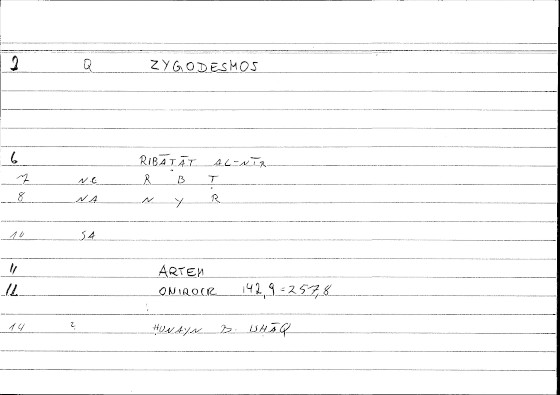 2 Q ZYGODESMOS
6 RIBĀṬĀT AL-NĪR
7 NC R B Ṭ
8 NA N Y R
10 SA
11 ARTEM
12 ONIROCR 142,9=257,8
14 ? ḤUNAYN B. ISḤĀQ